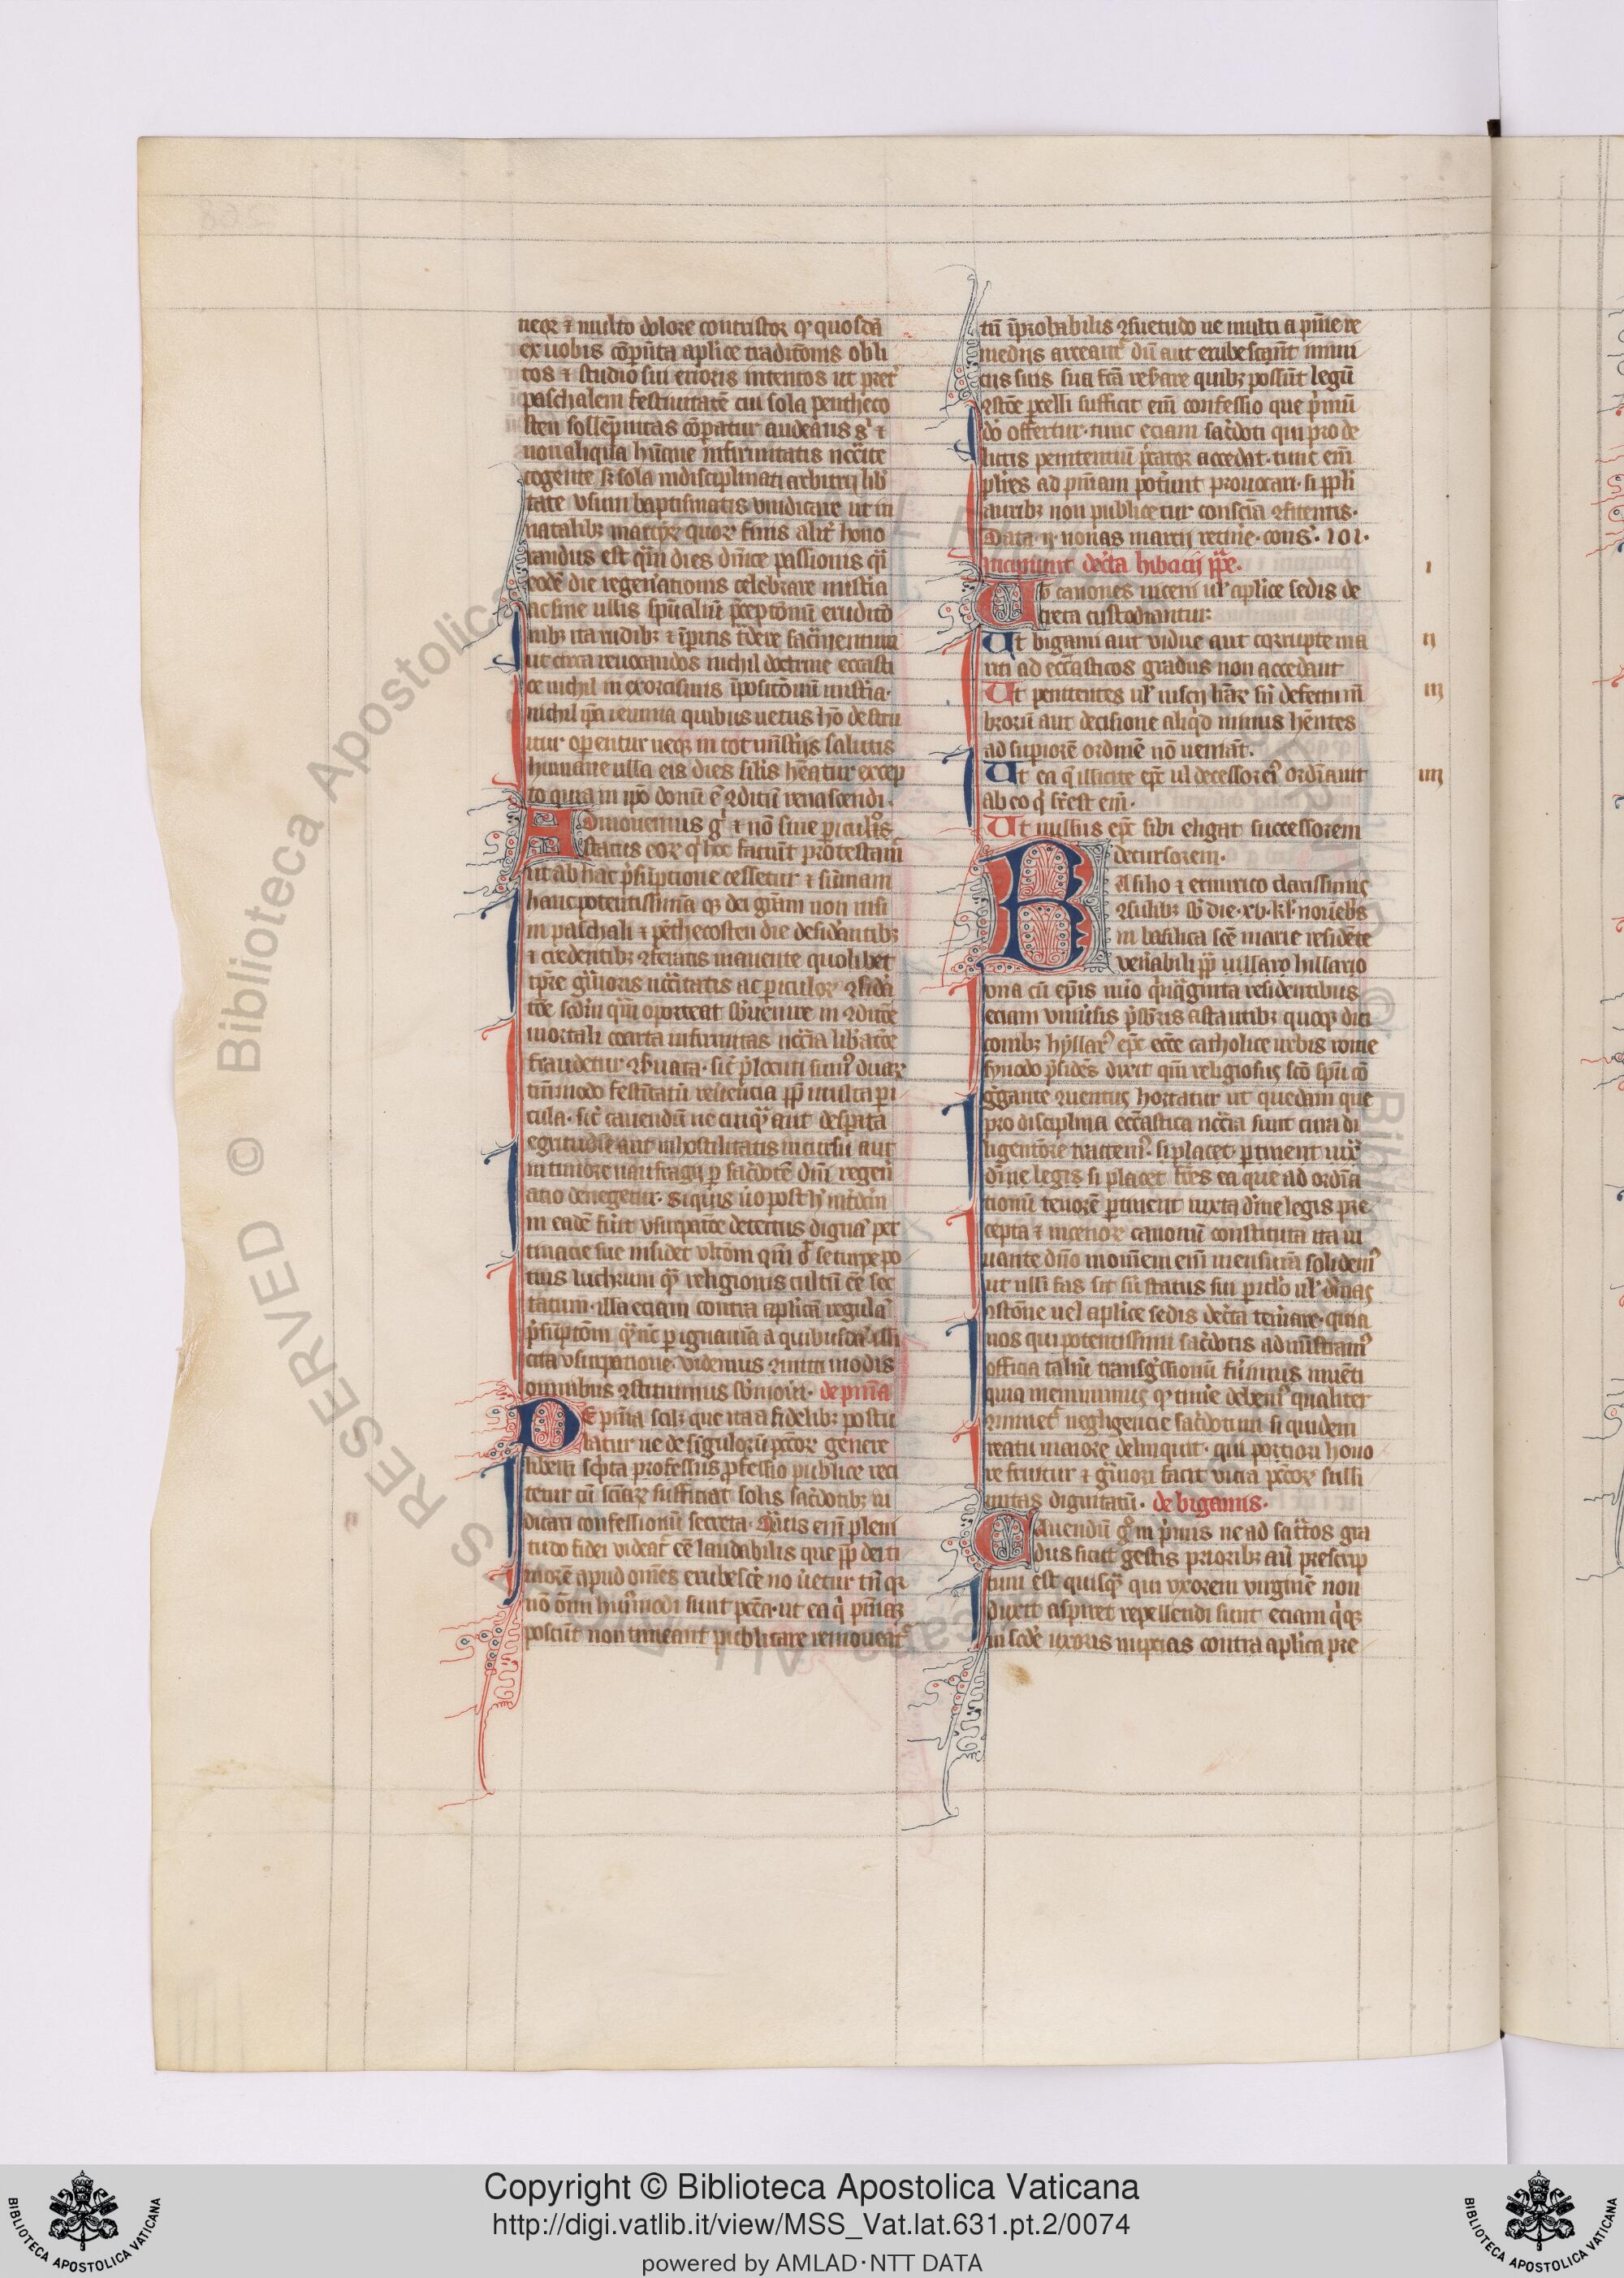 neqꝫ ⁊ multo dolore contristor qꝫ quosdā
ex uobis cōperta aplice traditōnis obli
tos ⁊ studio sui erroris intentos ut pret̾
paschalem festiuitatē cui sola pentheco
sten sollēpnitas cōparatur audeatis
non aliqua infirmitatis nccīte
cogente sꝫ sola indisciplinati arbitrij lib̾
tate usum baptismatis uindicare ut in
natalibꝫ martyrꝫ quorꝫ finis alit̾ hono
randus est qm̄ dies dn̄ice passionis
eodē die regenationis celebrare mist̾ia
ac sine ullis sp̄ualiū p̄ceptōnū eruditō
nibꝫ ita rudibꝫ ⁊ īp̄itis tradere sacramentum
ut circa reuocandos nichil doctrine eccl̄asti
ce nichil in exorcismis īpositōnū mist̾ia·
nichil ip̄a ieiunia quibus uetus hō destru
itur operentur neqꝫ in tot mist̾ijs salutis
humane ulla eis dies sil̄is hēatur excep
to quia in ip̄o donū ē ꝯditū renascendi·
Admouemus g̾ ⁊ nō sine periculis
status eorꝫ qⁱ hoc faciūt protestam̄
ut ab hac p̄sūptione cessetur ⁊ sūmam
hanc potentissimā qꝫ dei gr̄am non nisi
in paschali ⁊ pēthecosten die desid̾antibꝫ
⁊ credentibꝫ ꝯferatis manente quolibet
tp̄re g̾uioris nccītatis ac periculorꝫ ꝯsid̾a
tōe scd̄m qm̄ oporteat sb̾uenire in ꝯditōe
mortali coarta infirmitas nccīa lib̾atōe
fraudetur ꝯs̾uata· sic̄ p̄locuti sum̾ duarꝫ
tm̄modo festiuitatū reuerencia pp̄ multa pi
cula· sic̄ cauendū ne cuiqꝫ aut desperata
egritudīe aut in hostilitatis incursu aut
in timore naufragij p sac̾dotē dm̄ regen̾
atio denegetur· Siquis ūo post hͨ mandatum
in eadē fūit usurpatōe detectus digna per
tinacie sue insidet ultōm qm̄ se turpe po
tius luchrum qꝫ religionis cultū ēē sec
tatum· illa eciam contra aplicā regulā
p̄sūptōm q̄ nͨ per ignauiā a quibusdā illi
cita usurpatione uidemus ꝯmitti modis
omnibus ꝯstituimus sb̾moueri· de pn̄ia
De pn̄ia scilꝫ que ita a fidelibꝫ postu
latur ne de singulorū pcc̄orꝫ genere
libelli scpta professus professio publice reci
tetur cū sciār sufficiat solis sac̾dotibꝫ iu
dicari confessionū secreta· Quis eni pleni
tudo fidei uideat̾ ēē laudabilis que pp̄ dei ti
morē apud om̄es erubesce̾ no ueretur tn̄ qꝫ
nō om̄i huiᵒmodi sunt pcc̄a· ut ea qⁱ pn̄iaꝫ
poscūt non timeant publicare remoueat̾
tū īprobabilis ꝯsuetudo ne multi a pn̄ie re
medijs arceant̾ dū aut erubescunt inimi
cis suis sua fcā res̾are quibꝫ possūt legū
ꝯstōe percelli sufficit enī confessio que p̄mū
do offertur· tunc eciam sac̾doti qui pro de
lictis penitentiū p̄cator accedat· tunc enī
plīes ad pn̄iam poterunt prouocari· si ppli
auribꝫ non publicetur conscīa ꝯfitentis·
Data· ij· nonas marcij recīne· cons̾· 101·
Incipiunt dec̾ta hilarij ppe·
Ut canones niceni ul̾ aplice sedis de
creta custodiantur: I
Ut bigami aut uidue aut corrupte ma II
riti ad eccl̄asticos gradus non accedant
Ut penitentes ul̾ iuscij lr̄arꝫ siᵘ defectu m̄ III
brorū aut decisione aliq̄d minus hēntes
ad supiorē ordinē nō ueniāt·
Ut ea q̄ illicite ep̄c ul̾ decessor ei̾ ordinauit IIII
ab eo qⁱ sr̄est enī·
Ut nullus ep̄c sibi eligat successorem
decursorem·
Basilio ⁊ ermirico clarissimis
ꝯsulibꝫ sb̾ die· xv· kl̾· nouēbs
in basilica scē marie residēte
uenabili pp̄ uillaro hillario
una cū ep̄is nūo q̄dragīnta residentibus
eciam uniūsis p̄sbr̄is astantibꝫ quoqꝫ dia
conibꝫ hyllar̾ ep̄c eccē catholice urbis rome
synodo p̄sidēs dixit qm̄ religiosus scō spū cō
gregante ꝯuentus hortatur ut quedam que
pro disciplina eccl̄astica nccīa sunt cura di
ligentiore tractem̾· si placet· ptinent iux̾
diuine legis si placet fr̄es ea que ad ordīa
tionū tenorē ptinent iuxta diuine legis pre
cepta ⁊ nicenorꝫ canonū constituta ita iu
uante dn̄o in om̄em eui mensurā solidem̾
ut nlli fas sit siᵘ status sui pericl̾o ul̾ diuinas
ꝯstōne uel aplice sedis dec̾ta tem̾are· quia
nos qui potentissimi sac̾dotis administram̾
officia taliū transgressionū fūimus inuēti
quia meminimus qꝫ timere debem̾ qualiter
ꝯminuet̾ negligencie sac̾dotum si quidem
reatu maiore delinquit· qui pociori hono
re fruitur ⁊ g̾uiora facit uicia pcc̄orꝫ sulli
mitas dignitatū· de bigamis·
Cauendū g̾ in p̄mis ne ad sac̾tos gra
dus sicut gestis prioribꝫ aū prescrip
tum est quisqꝫ qui uxorem uirginē non
duxit aspiret repellendi sunt eciam qⁱqꝫ
in scd̄e uxoris nupcias contra aplica pre
Copyright © Biblioteca Apostolica Vaticana
http://digi.vatlib.it/view/MSS_Vat.lat.631.pt.2/0074
powered by AMLAD·NTT DATA
BIBLIOTECA APOSTOLICA VATICANA
BIBLIOTECA APOSTOLICA VATICANA